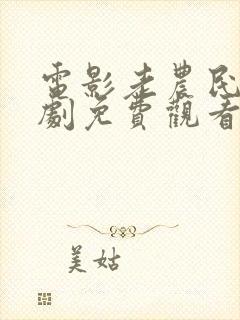 電影老農民
劇免費觀看
美姑